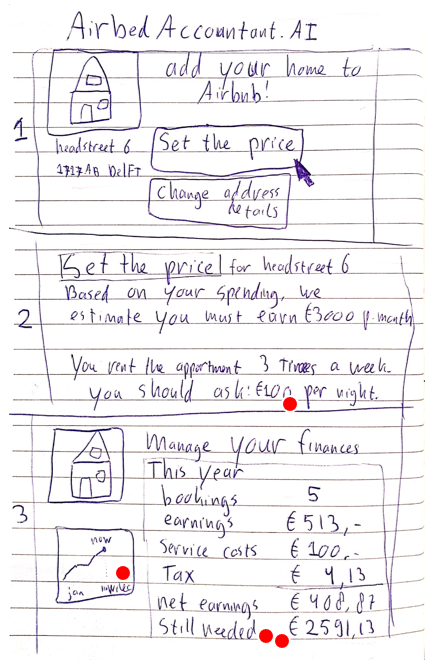 Airbed Accountant.AI
add your home to
Airbnb!
1
headstreet 6
1717AB Delft
Set the price
Change address
details
Set the price for headstreet 6
2
Based on your spending, we
estimate you must earn €3000 p.month
You rent the appartment 3 times a week.
you should ask: €100 per night.
3
Manage your finances
This year
bookings 5
earnings € 513,-
Service costs € 100,-
Tax € 4,13
net earnings € 408,87
Still needed € 2591,13
now
jan